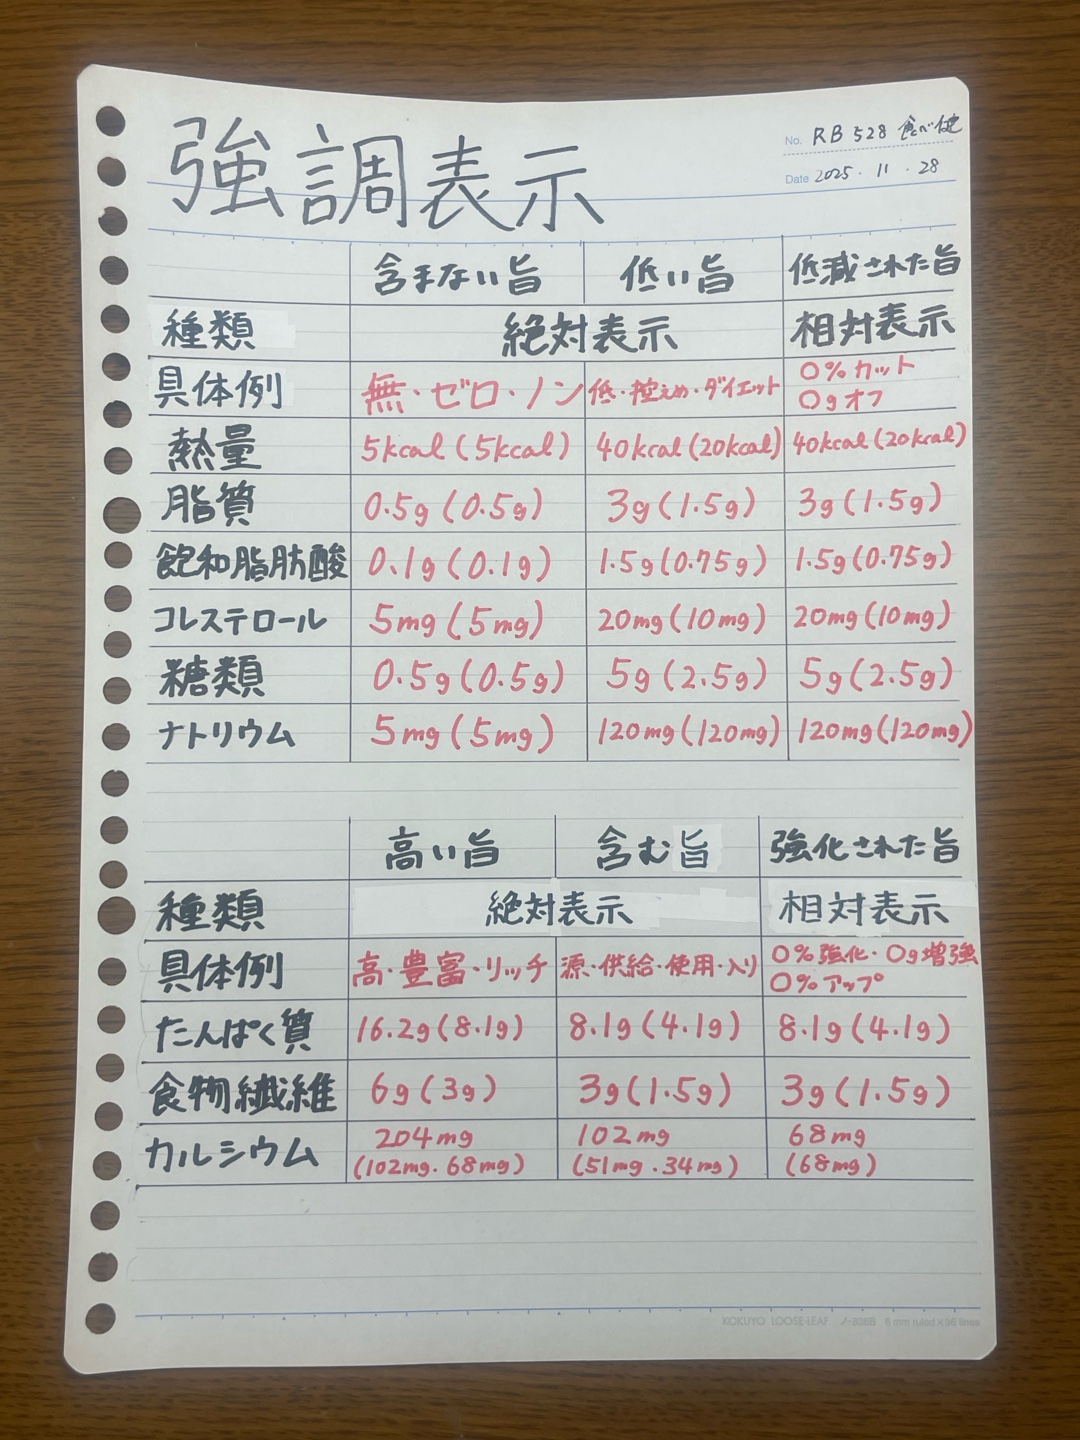 No. RB 528 食べ健
Date 2025・11・28
強調表示
含まない旨 低い旨 低減された旨
種類 絶対表示 相対表示
具体例 無・ゼロ・ノン 低・控えめ・ダイエット 〇%カット
〇gオフ
熱量 5kcal(5kcal) 40kcal(20kcal) 40kcal(20kcal)
脂質 0.5g(0.5g) 3g(1.5g) 3g(1.5g)
飽和脂肪酸 0.1g(0.1g) 1.5g(0.75g) 1.5g(0.75g)
コレステロール 5mg(5mg) 20mg(10mg) 20mg(10mg)
糖類 0.5g(0.5g) 5g(2.5g) 5g(2.5g)
ナトリウム 5mg(5mg) 120mg(120mg) 120mg(120mg)
高い旨 含む旨 強化された旨
種類 絶対表示 相対表示
具体例 高・豊富・リッチ 源・供給・使用・入り 〇%強化・〇g増強
〇%アップ
たんぱく質 16.2g(8.1g) 8.1g(4.1g) 8.1g(4.1g)
食物繊維 6g(3g) 3g(1.5g) 3g(1.5g)
カルシウム 204mg 102mg 68mg
(102mg・68mg) (51mg・34mg) (68mg)
KOKUYO LOOSE-LEAF ノ-836B 6mm ruled×36 lines